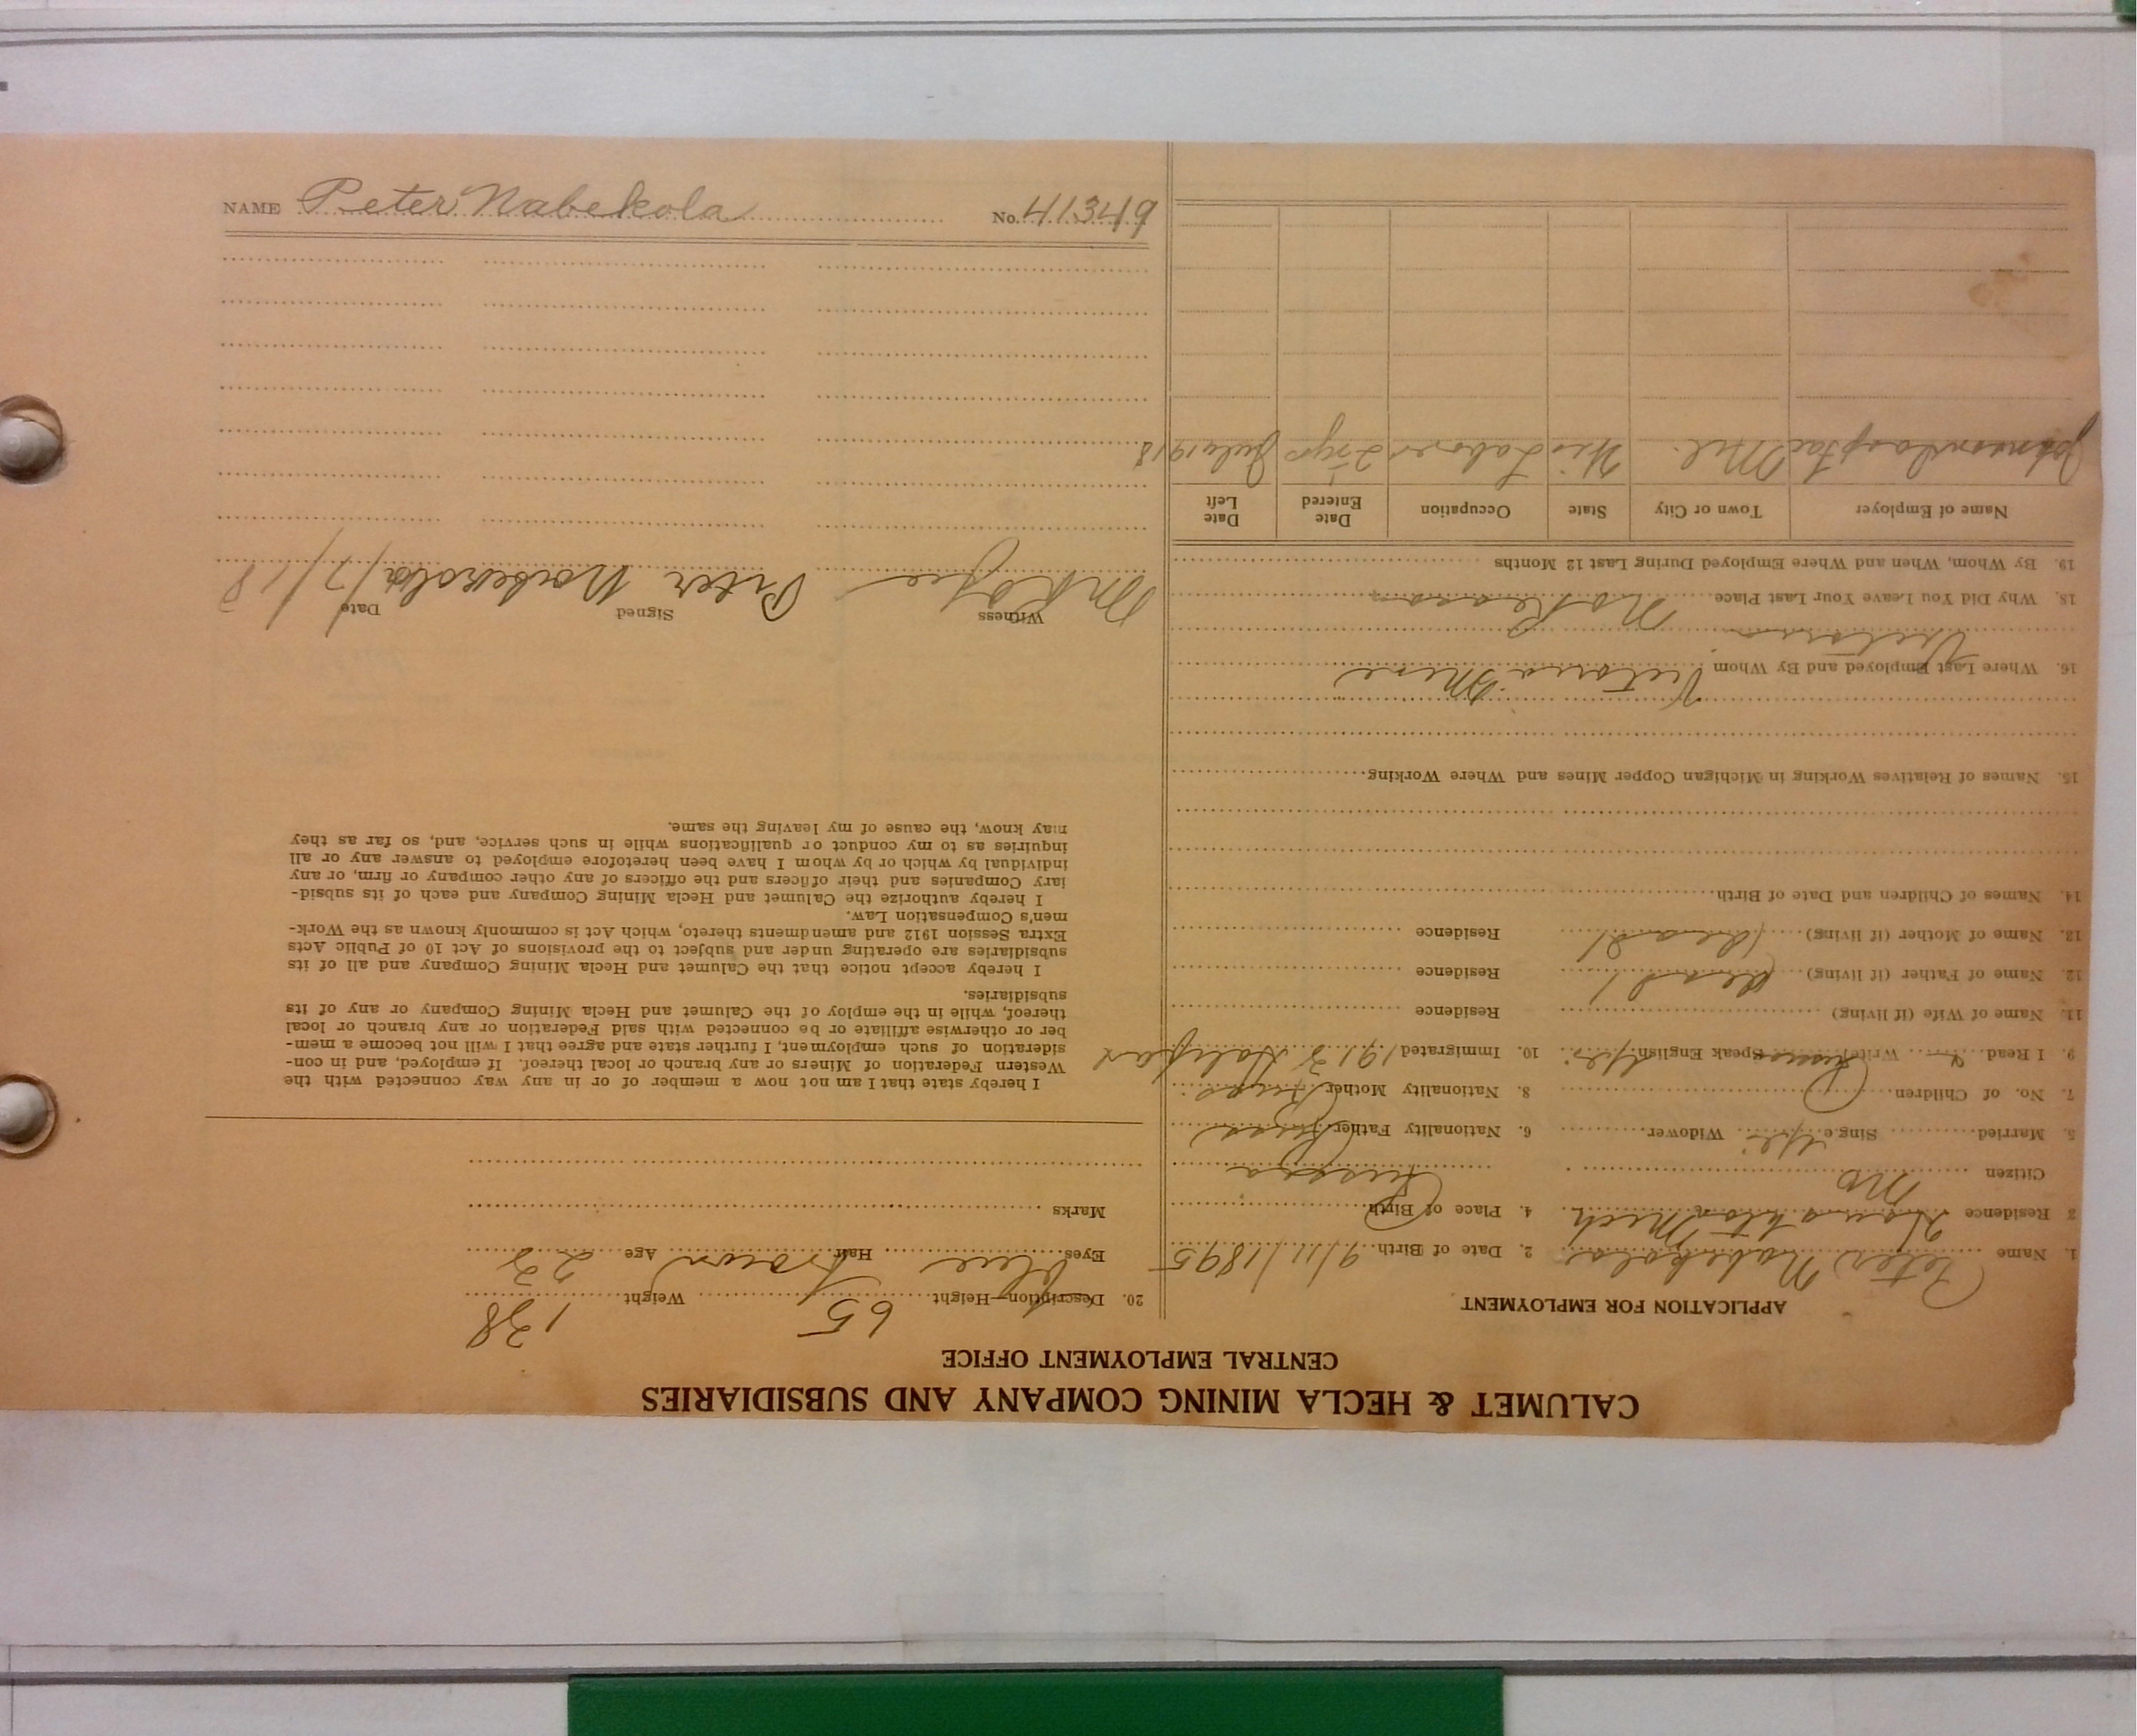 CALUMET & HECLA MINING COMPANY AND SUBSIDIARIES
CENTRAL EMPLOYMENT OFFICE
APPLICATION FOR EMPLOYMENT
1. Name Peter Nabekola 2. Date of Birth 9/11/1895
3 Residence Houghton Mich 4. Place of Birth Russia
Citizen No
5. Married Single Yes Widower 6. Nationality Father Russ
7. No. of Children 8. Nationality Mother Russ
9. I Read Write Speak English Yes 10. Immigrated 1912 Halifax
11. Name of Wife (if living) Residence
12. Name of Father (if living) Dead Residence
13. Name of Mother (if living) Dead Residence
14. Names of Children and Date of Birth
15. Names of Relatives Working in Michigan Copper Mines and Where Working
16. Where Last Employed and By Whom Victoria Mine
Victoria
18. Why Did You Leave Your Last Place No Reason
19. By Whom, When and Where Employed During Last 12 Months
Name of Employer Town or City State Occupation Date Entered Date Left
Mil. Wis Laborer 2 yrs July 1918
20. Description—Height 65 Weight 138
Eyes Blue Hair Brown Age 22
Marks
I hereby state that I am not now a member of or in any way connected with the
Western Federation of Miners or any branch or local thereof. If employed, and in con-
sideration of such employment, I further state and agree that I will not become a mem-
ber or otherwise affiliate or be connected with said Federation or any branch or local
thereof, while in the employ of the Calumet and Hecla Mining Company or any of its
subsidiaries.
I hereby accept notice that the Calumet and Hecla Mining Company and all of its
subsidiaries are operating under and subject to the provisions of Act 10 of Public Acts
Extra Session 1912 and amendments thereto, which Act is commonly known as the Work-
men's Compensation Law.
I hereby authorize the Calumet and Hecla Mining Company and each of its subsid-
iary Companies and their officers and the officers of any other company or firm, or any
individual by which or by whom I have been heretofore employed to answer any or all
inquiries as to my conduct or qualifications while in such service, and, so far as they
may know, the cause of my leaving the same.
Witness Signed Peter Nabekola Date /7/18
NAME Peter Nabekola No. 41349